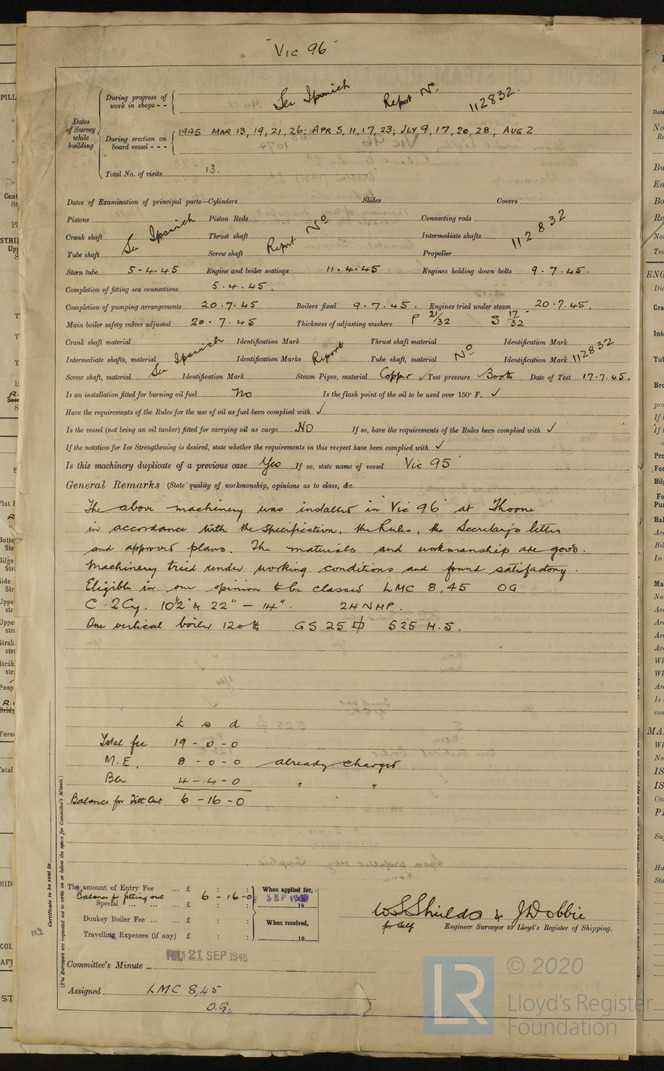 "Vic 96"
Dates of Survey while building
During progress of work in shops - - See Ipswich Report No. 112832.
During erection on board vessel - - - 1945 MAR 13, 19, 21, 26; APR 5, 11, 17, 23; JLY 9, 17, 20, 28; AUG 2
Total No. of visits 13.
Dates of Examination of principal parts—Cylinders Slides Covers
Pistons Piston Rods Connecting rods
Crank shaft Thrust shaft Intermediate shafts
See Ipswich Report No 112832
Tube shaft Screw shaft Propeller
Stern tube 5.4.45 Engine and boiler seatings 11.4.45 Engines holding down bolts 9.7.45.
Completion of fitting sea connections 5.4.45.
Completion of pumping arrangements 20.7.45 Boilers fixed 9.7.45. Engines tried under steam 20.7.45.
Main boiler safety valves adjusted 20.7.45 Thickness of adjusting washers P 21/32 S 17/32
Crank shaft material Identification Mark Thrust shaft material Identification Mark
Intermediate shafts, material Identification Marks Tube shaft, material Identification Mark
See Ipswich Report No 112832
Screw shaft, material Identification Mark Steam Pipes, material Copper ✓ Test pressure ✓ Date of Test 17.7.45.
Is an installation fitted for burning oil fuel No Is the flash point of the oil to be used over 150° F. ✓
Have the requirements of the Rules for the use of oil as fuel been complied with ✓
Is the vessel (not being an oil tanker) fitted for carrying oil as cargo NO If so, have the requirements of the Rules been complied with ✓
If the notation for Ice Strengthening is desired, state whether the requirements in this respect have been complied with ✓
Is this machinery duplicate of a previous case Yes If so, state name of vessel Vic 95
General Remarks (State quality of workmanship, opinions as to class, &c.
The above machinery was installed in "Vic 96" at Thorne
in accordance with the specification, the Rules, the Secretary's letters
and approved plans. The materials and workmanship are good.
Machinery tried under working conditions and found satisfactory.
Eligible in our opinion to be classed LMC 8,45 OG
C. 2Cy. 10½" & 22" — 14". 24 NHP.
One vertical boiler 120 lb GS 25 S25 H.S.
£ s d
Total fee 19 - 0 - 0
M.E. 8 - 0 - 0 already charged
Blr 4 - 4 - 0 " "
Balance for Fitt. Out 6 - 16 - 0
Certificate to be sent to
(The Surveyors are requested not to write on or below the space for Committee's Minute.)
The amount of Entry Fee ... £ : :
Balance for fitting out
Special ... ... £ 6 - 16 - 0
Donkey Boiler Fee ... £ : :
Travelling Expenses (if any) £ : :
When applied for,
SEP 19
When received,
19
W S Shields & J Dobbie
for self
Engineer Surveyor to Lloyd's Register of Shipping.
FRI. 21 SEP 1945
Committee's Minute
Assigned LMC 8,45
O.G.
LR
© 2020
Lloyd's Register
Foundation